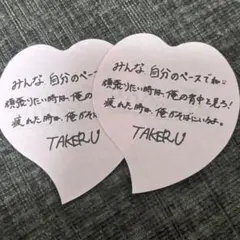 みんな 自分のペースでね
頑張りたい時は、俺の背中を見ろ!
疲れた時は、俺がそばにいるよ。
TAKERU
みんな 自分のペースでね
頑張りたい時は、俺の背中を見ろ!
疲れた時は、俺がそばにいるよ。
TAKERU